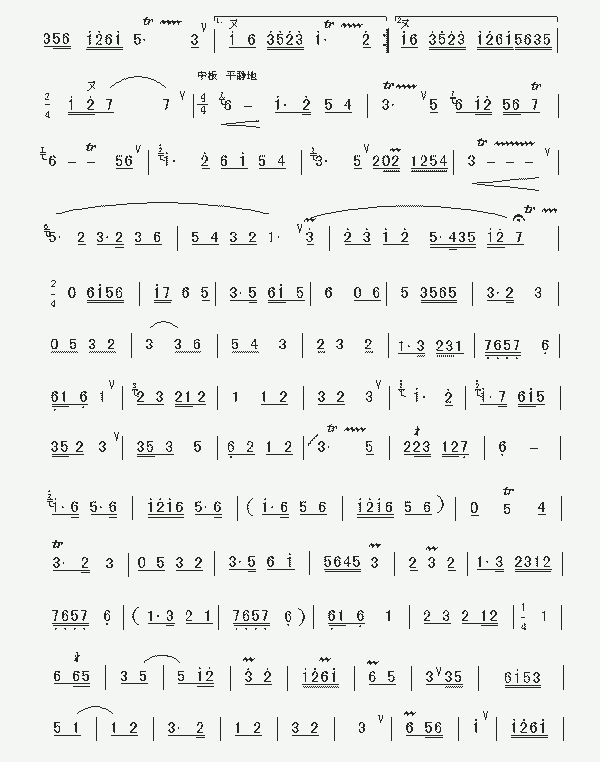 356 1261 5· tr 3 V | 1. 又 1 6 3523 1· tr 2 :| 2. 又 16 3523 12615635 |
2/4 1 又 2 7 7 V | 4/4 中板 平静地 6 – 1· 2 5 4 | 3· tr V 5 6 12 56 7 tr |
6 – – tr 56 V | 1· 2 6 1 5 4 | 3· 5 V 202 1254 | 3 tr – – – V
5· 2 3·2 3 6 | 5 4 3 2 1· V 3 | 2 3 1 2 5·435 12 7 tr |
2/4 0 6156 | 17 6 5 | 3·5 61 5 | 6 0 6 | 5 3565 | 3·2 3 |
0 5 3 2 | 3 3 6 | 5 4 3 | 2 3 2 | 1·3 231 | 7657 6 |
61 6 1 V | 2 3 21 2 | 1 1 2 | 3 2 3 V | 1· 2 | 1·7 615 |
35 2 3 V | 35 3 5 | 6 2 1 2 | 3· tr 5 | 223 127 | 6 – |
1·6 5·6 | 1216 5·6 | ( 1·6 5 6 | 1216 5 6 ) | 0 5 tr 4 |
3· tr 2 3 | 0 5 3 2 | 3·5 6 1 | 5645 3 | 2 3 2 | 1·3 2312 |
7657 6 | ( 1·3 2 1 | 7657 6 ) | 61 6 1 | 2 3 2 12 | 1/4 1 |
6 65 | 3 5 | 5 12 | 3 2 | 1261 | 6 5 | 3 V 35 | 6153 |
5 1 | 1 2 | 3· 2 | 1 2 | 3 2 | 3 V | 6 56 | 1 V | 1261 |